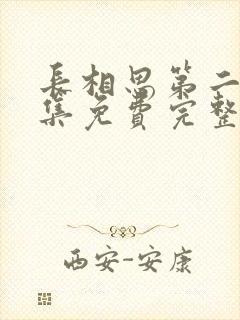 长相思第二
集免费完整
西安-安康